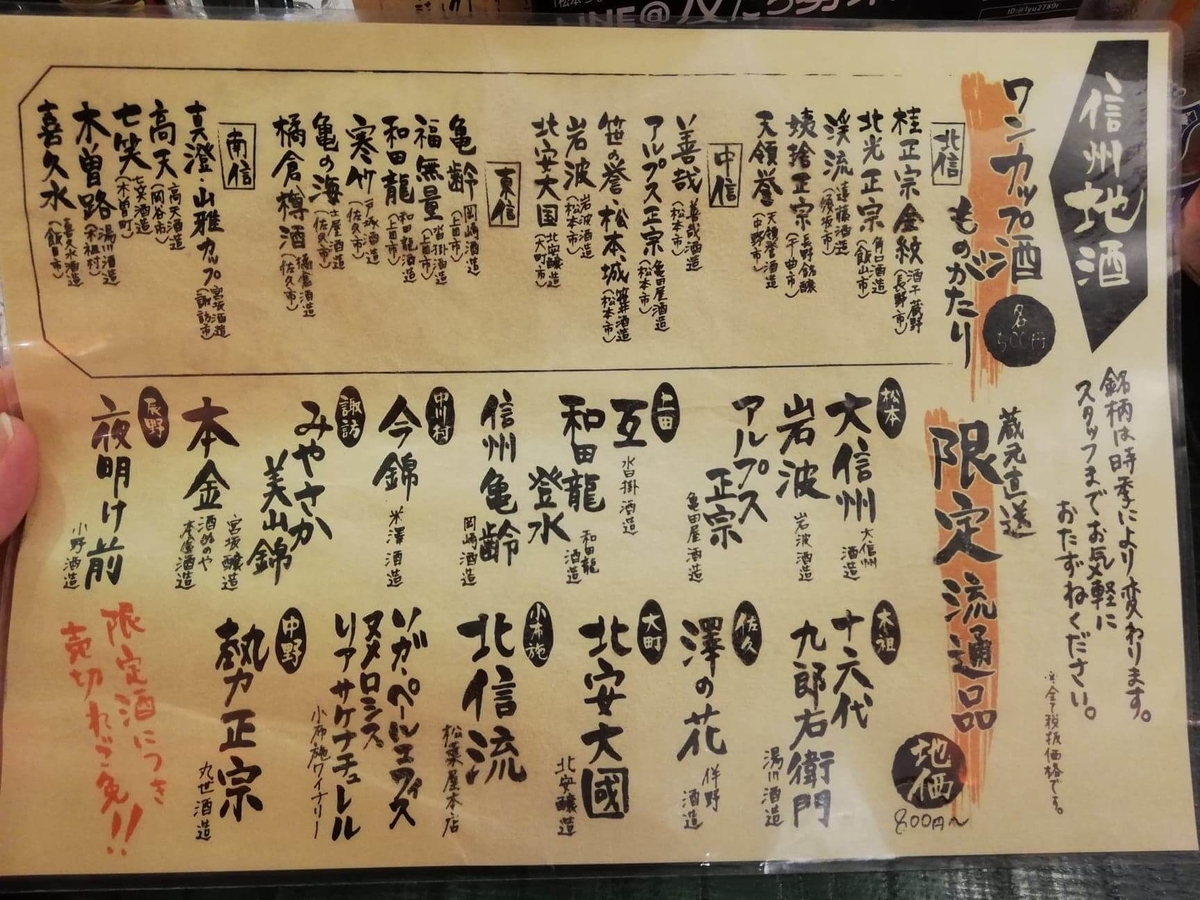 信州地酒
銘柄は時季により変わります。
スタッフまでお気軽に
おたずねください。
※全て税抜価格です。
ワンカップ酒
各500円
ものがたり
北信
桂正宗金紋 酒千蔵野(長野市)
北光正宗 角口酒造(飯山市)
渓流 遠藤酒造(須坂市)
姨捨正宗 長野銘醸(千曲市)
天領誉 天領誉酒造(中野市)
中信
善哉 善哉酒造(松本市)
アルプス正宗 亀田屋酒造(松本市)
笹の誉・松本城 笹井酒造(松本市)
岩波 岩波酒造(松本市)
北安大国 北安醸造(大町市)
東信
亀齢 岡崎酒造(上田市)
福無量 沓掛酒造(上田市)
和田龍 和田龍酒造(上田市)
寒竹 戸塚酒造(佐久市)
亀の海 土屋酒造(佐久市)
橘倉樽酒 橘倉酒造(佐久市)
南信
真澄・山雅カップ 宮坂醸造(諏訪市)
高天 高天酒造(岡谷市)
七笑 七笑酒造(木曽町)
木曽路 湯川酒造(木祖村)
喜久水 喜久水酒造(飯田市)
蔵元直送
限定流通品
地価
800円〜
松本
大信州 大信州酒造
岩波 岩波酒造
アルプス正宗 亀田屋酒造
上田
互 沓掛酒造
和田龍登水 和田龍酒造
信州亀齢 岡崎酒造
中川村
今錦 米澤酒造
諏訪
みやさか美山錦 宮坂醸造
本金 酒ぬのや本金酒造
辰野
夜明け前 小野酒造
木祖
十六代九郎右衛門 湯川酒造
佐久
澤の花 伴野酒造
大町
北安大國 北安醸造
小布施
北信流 松葉屋本店
ソガ・ペールエフィス
ヌメロシス
リア サケナチュレル
小布施ワイナリー
中野
勢正宗 丸世酒造
限定酒につき
売切れご免!!